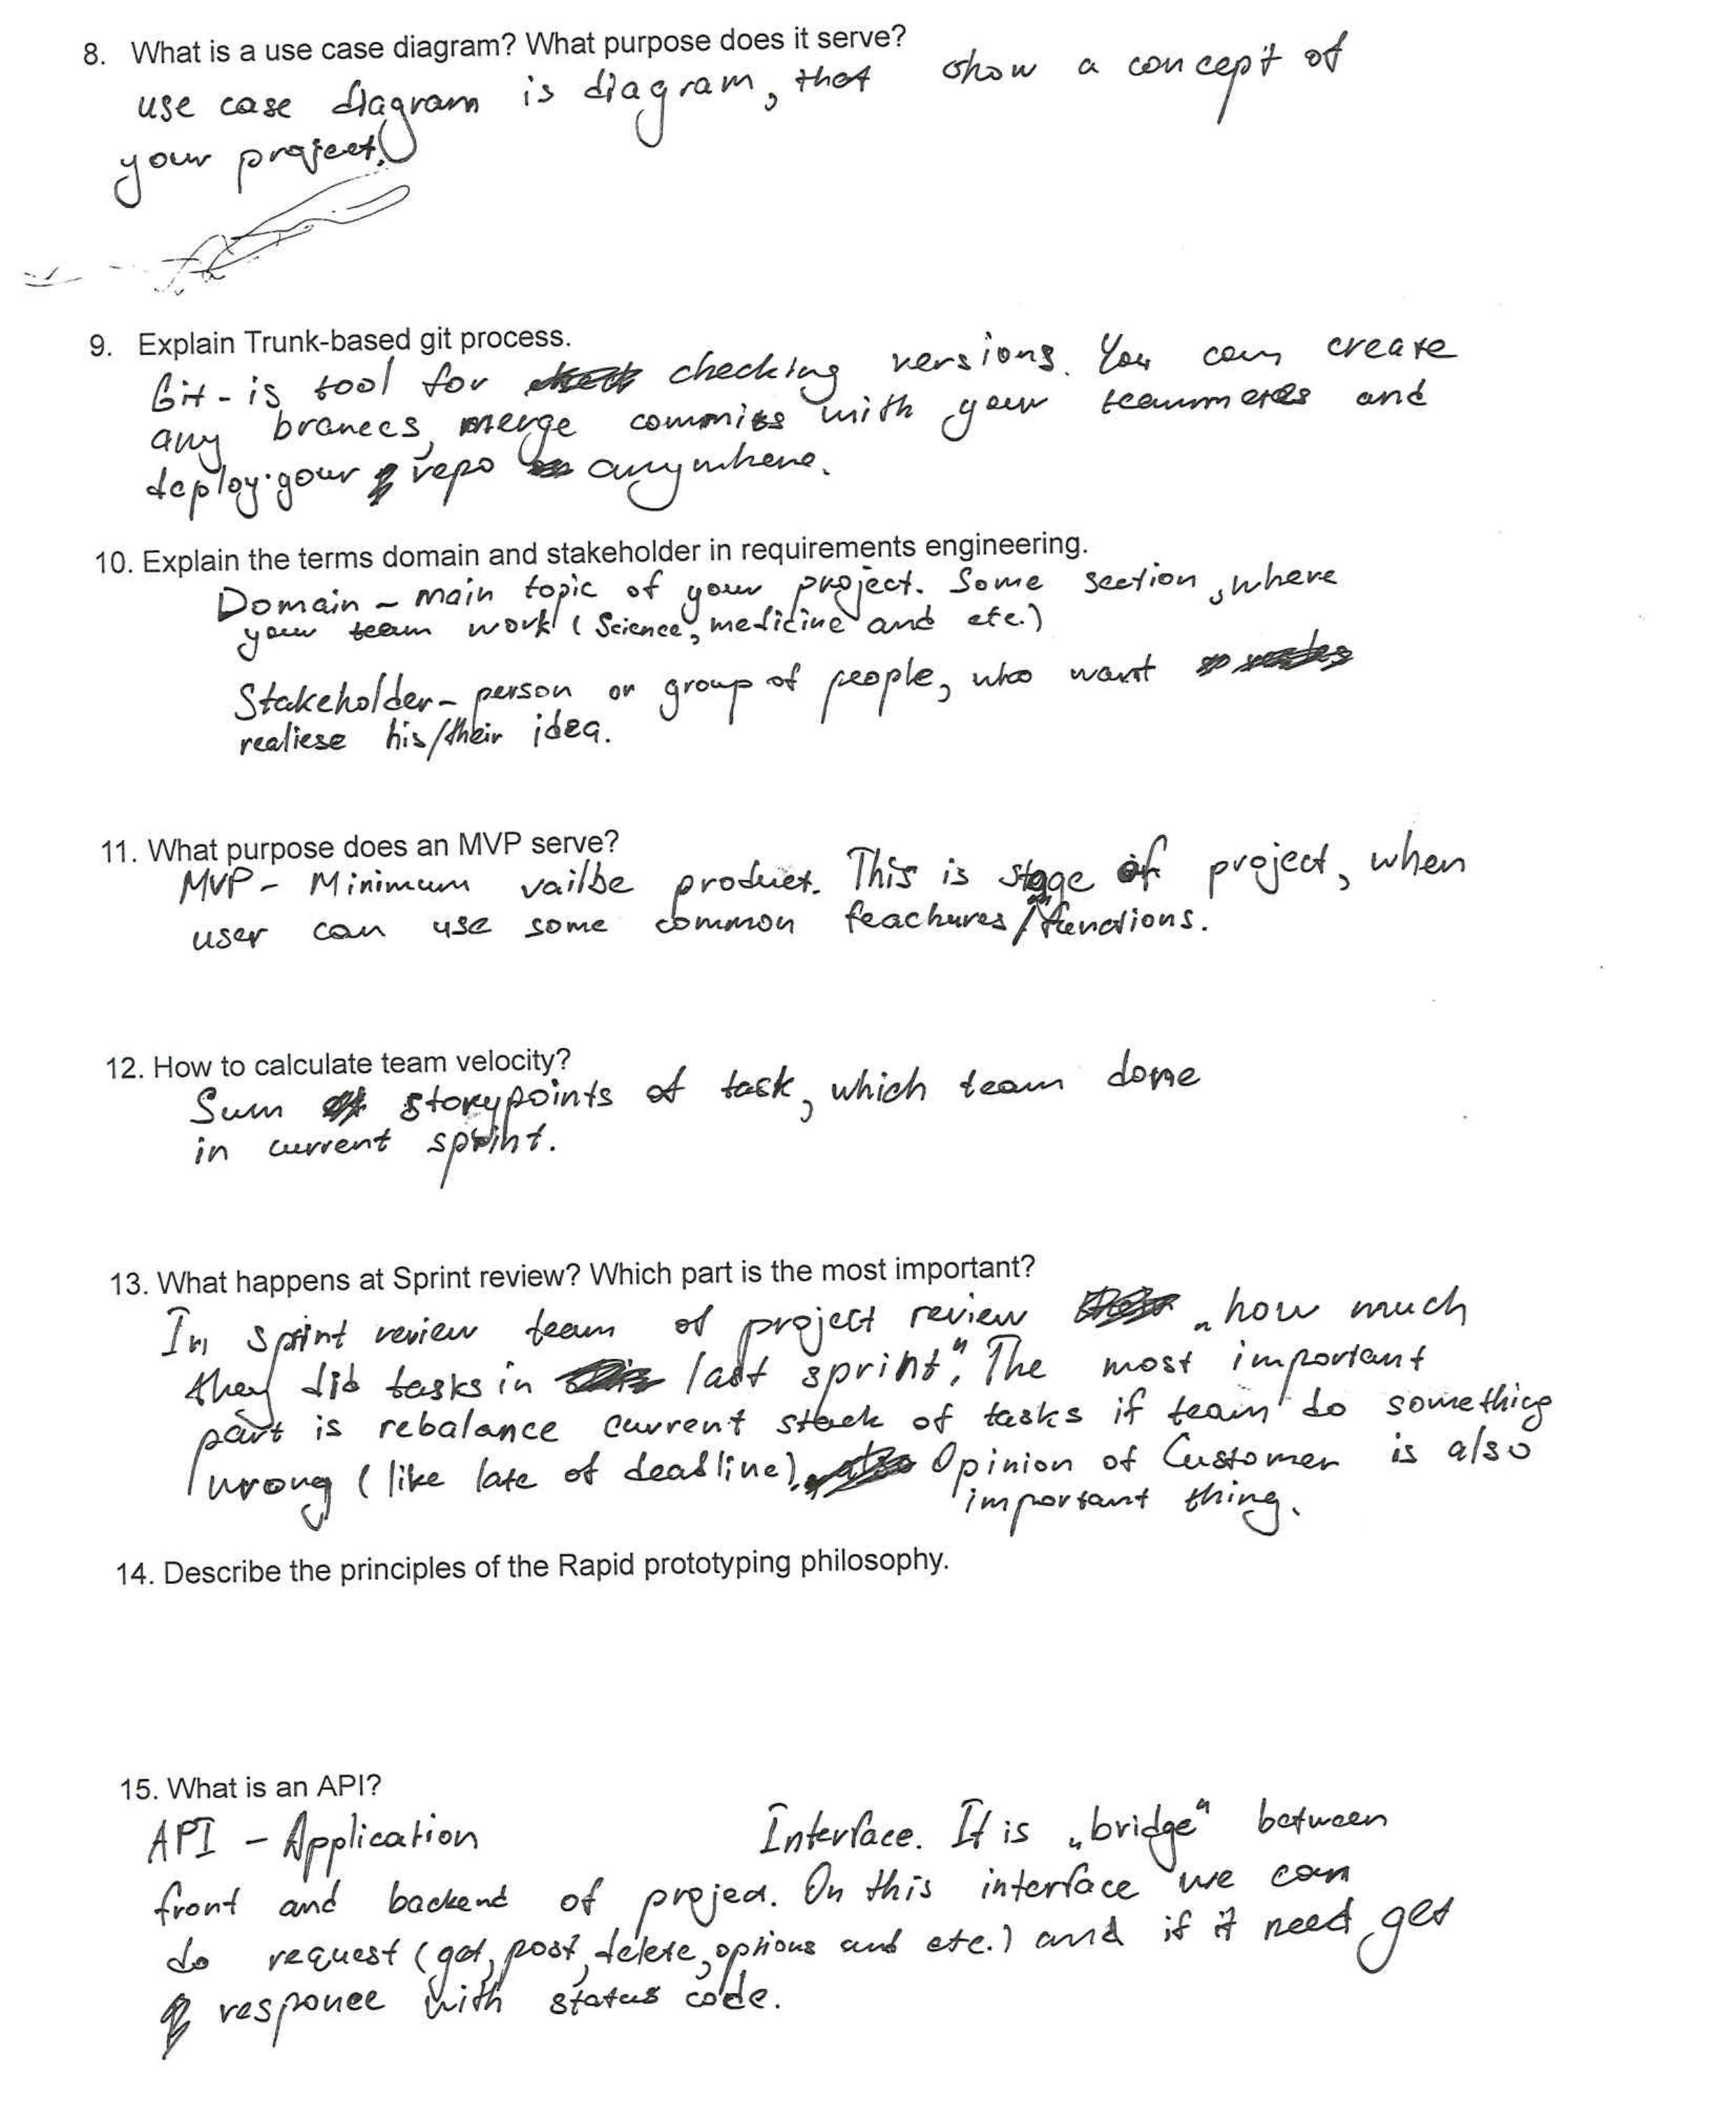 8. What is a use case diagram? What purpose does it serve?
use case diagram is diagram, that show a concept of
your project.
9. Explain Trunk-based git process.
Git - is tool for checking versions. You can create
any brances, merge commits with your teammates and
deploy your repo anywhere.
10. Explain the terms domain and stakeholder in requirements engineering.
Domain - main topic of your project. Some section, where
your team work (Science, medicine and etc.)
Stakeholder - person or group of people, who want
realiese his/their idea.
11. What purpose does an MVP serve?
MVP - Minimum vailbe product. This is stage of project, when
user can use some common feachures/functions.
12. How to calculate team velocity?
Sum storypoints of task, which team done
in current sprint.
13. What happens at Sprint review? Which part is the most important?
In sprint review team of project review „how much
they did tasks in last sprint". The most important
part is rebalance current stack of tasks if team do something
wrong (like late of deadline). Opinion of Customer is also
important thing.
14. Describe the principles of the Rapid prototyping philosophy.
15. What is an API?
API - Application Interface. It is „bridge" between
front and backend of project. On this interface we can
do request (get, post, delete, options and etc.) and if it need get
responce with status code.